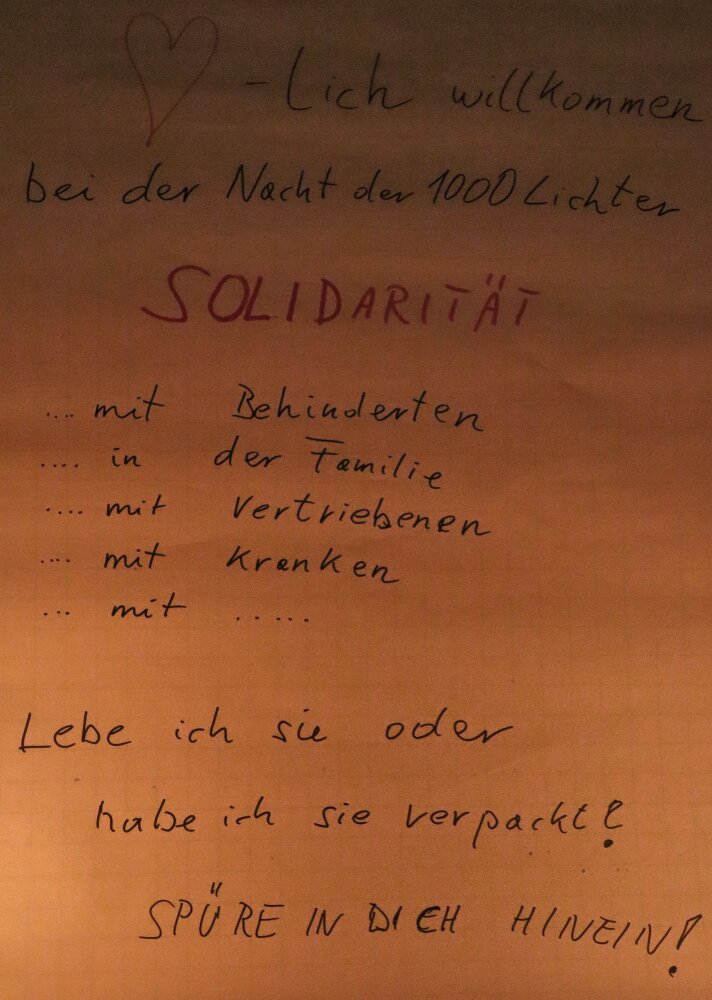 -Lich willkommen
bei der Nacht der 1000 Lichter
SOLIDARITÄT
.... mit Behinderten
.... in der Familie
.... mit Vertriebenen
.... mit Kranken
... mit .....
Lebe ich sie oder
habe ich sie verpackt?
SPÜRE IN DICH HINEIN!